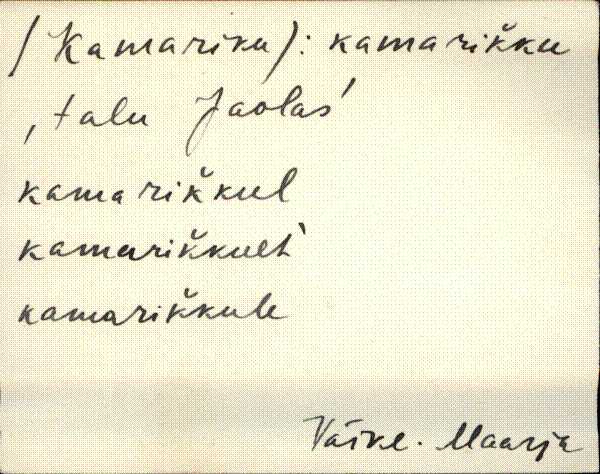 (Kamariku): kamarik̆ku
, talu Jaolas'
kamarik̆kul
kamarik̆kuet`
kamarik̆kule
Väike-Maarja